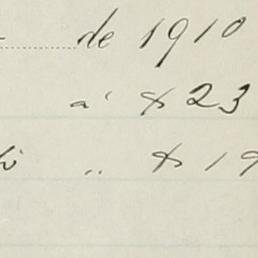 de 1910
a' $ 23
" $ 19